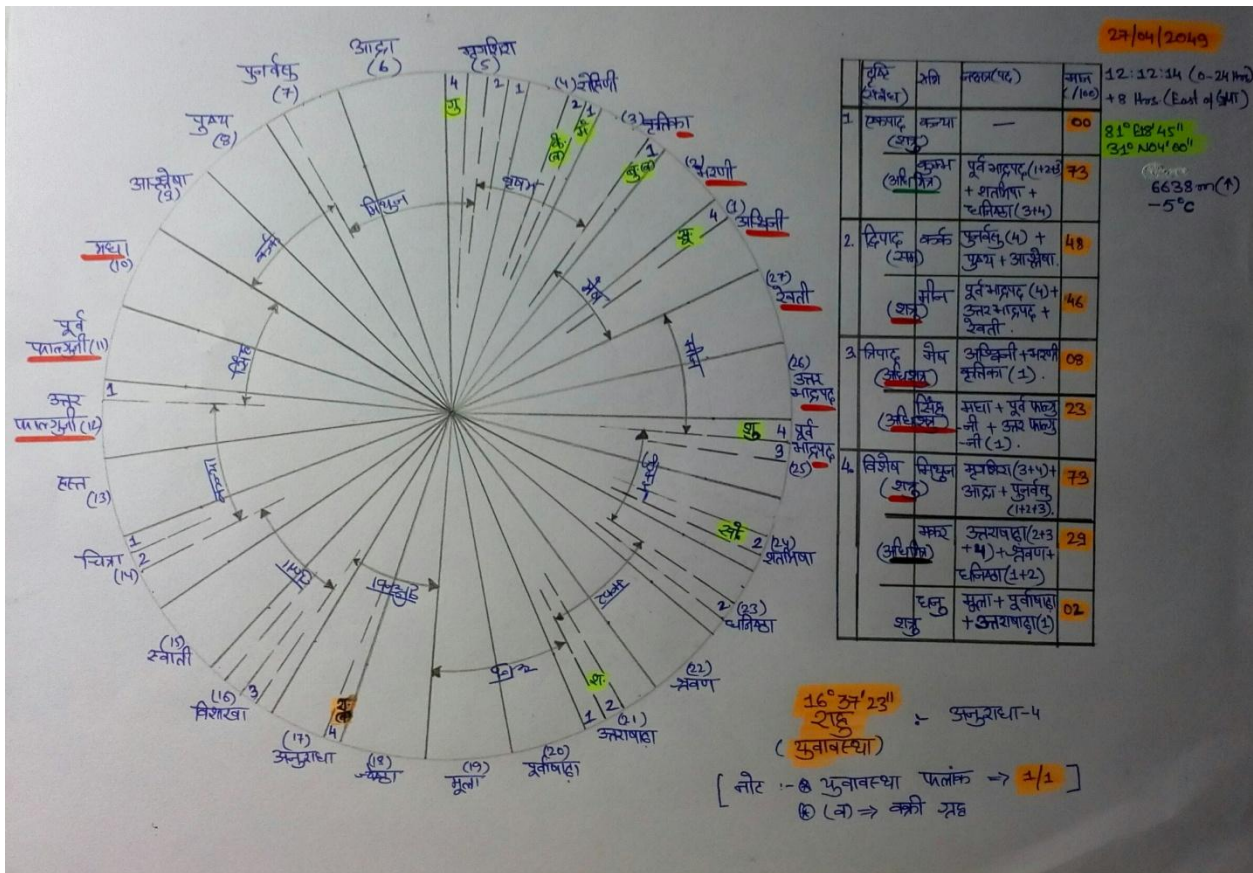 27/04/2049
12:12:14 (0-24 Hrs)
+8 Hrs. (East of GMT)
81° E18'45"
31° N04'00"
6638 m (↑)
-5°C
आद्रा
(6)
मृगशिरा
(5)
(4) रोहिणी
(3) कृतिका
(2)
भरणी
(1)
अश्विनी
(27)
रेवती
(26)
उत्तर
भाद्रपद
पूर्व
भाद्रपद
(25)
(24)
शतभिषा
(23)
धनिष्ठा
(22)
श्रवण
(21)
उत्तराषाढ़ा
(20)
पूर्वाषाढ़ा
(19)
मूला
(18)
ज्येष्ठा
(17)
अनुराधा
(16)
विशाखा
(15)
स्वाती
चित्रा
(14)
हस्त
(13)
उत्तर
फाल्गुनी (12)
पूर्व
फाल्गुनी (11)
मघा
(10)
आश्लेषा
(9)
पुष्य
(8)
पुनर्वसु
(7)
4
गु
2
1
2
1
1
बु.(व)
4
सू.
शु
4
3
2
2
श.
2
1
4
3
2
1
1
मिथुन
वृषभ
मेष
मीन
कुम्भ
मकर
धनु
वृश्चिक
तुला
कन्या
सिंह
कर्क
दृष्टि
(संबंध)
राशि
नक्षत्र(पद)
मान
(/100)
1. एकपाद
(शत्रु)
कन्या
—
00
कुम्भ
(अधिमित्र)
पूर्व भाद्रपद (1+2+3)
+ शतभिषा +
धनिष्ठा (3+4)
73
2. द्विपाद
(सम)
कर्क
पुनर्वसु (4) +
पुष्य + आश्लेषा.
48
मीन
(शत्रु)
पूर्व भाद्रपद (4) +
उत्तर भाद्रपद +
रेवती.
46
3. त्रिपाद
(अधिशत्रु)
मेष
अश्विनी + भरणी
कृतिका (1).
08
सिंह
(अधिशत्रु)
मघा + पूर्व फाल्गु
-नी + उत्तर फाल्गु
-नी (1).
23
4. विशेष
(शत्रु)
मिथुन
मृगशिरा (3+4) +
आद्रा + पुनर्वसु
(1+2+3).
73
मकर
(अधिमित्र)
उत्तराषाढ़ा (2+3
+4) + श्रवण +
धनिष्ठा (1+2)
29
धनु
शत्रु
मूला + पूर्वाषाढ़ा
+ उत्तराषाढ़ा (1)
02
16° 37' 23"
राहु :- अनुराधा-4
(युवावस्था)
[ नोट :- ⊛ युवावस्था फलांक => 1/1 ]
⊛ (व) => वक्री ग्रह